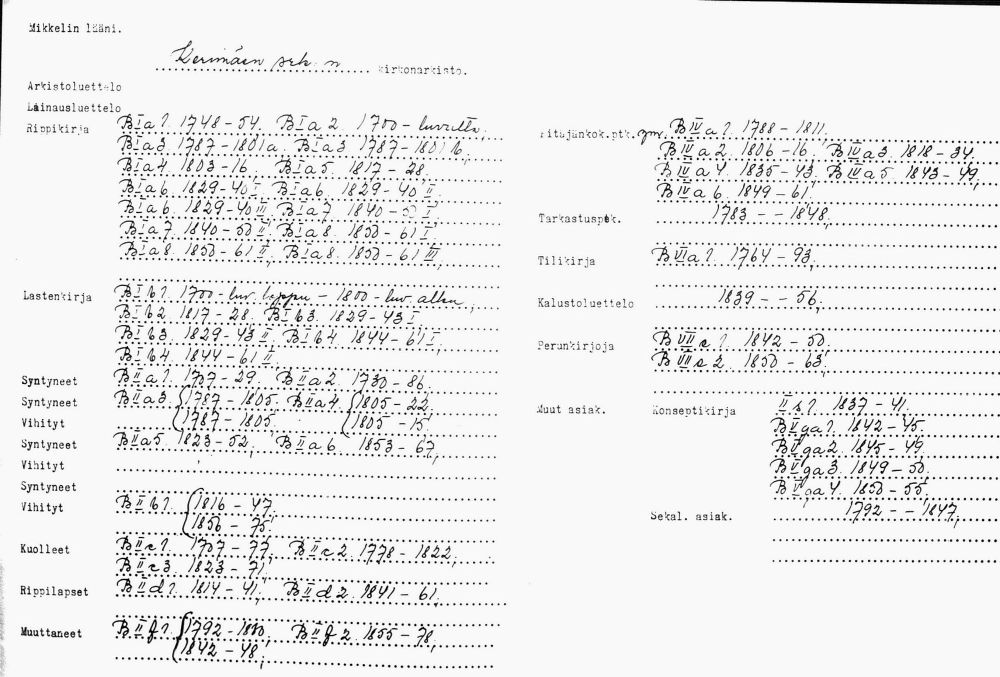 Mikkelin lääni.
Kerimäen srk. n kirkonarkisto.
Arkistoluettelo
Lainausluettelo
Rippikirja B I a 1. 1748-54. B I a 2. 1700-luvulta,
B I a 3. 1787-1801 a. B I a 3. 1787-1801 b,
B I a 4. 1803-16, B I a 5. 1817-28,
B I a 6. 1829-40 I, B I a 6. 1829-40 II,
B I a 6. 1829-40 III, B I a 7. 1840-50 I,
B I a 7. 1840-50 II, B I a 8. 1850-61 I,
B I a 8. 1850-61 II, B I a 8. 1850-61 III,
Lastenkirja B I b 1. 1700-luv. loppu - 1800-luv. alku,
B I b 2. 1817-28. B I b 3. 1829-43 I,
B I b 3. 1829-43 II, B I b 4. 1844-61 I,
B I b 4. 1844-61 II,
Syntyneet B II a 1. 1707-29. B II a 2. 1730-86.
Syntyneet B II a 3. 1787-1805. B II a 4. 1805-22,
Vihityt 1787-1805. 1805-15.
Syntyneet B II a 5. 1823-52, B II a 6. 1853-67,
Vihityt
Syntyneet
Vihityt B II b 1. 1816-47.
1856-75.
Kuolleet B II c 1. 1707-77, B II c 2. 1778-1822,
B II c 3. 1823-71,
Rippilapset B II d 1. 1814-41, B II d 2. 1841-61,
Muuttaneet B II f 1. 1792-1880, B II f 2. 1855-78,
1842-48,
Pitäjänkok.ptk. ym. B IV a 1. 1788-1811.
B IV a 2. 1806-16. B IV a 3. 1818-34.
B IV a 4. 1835-43. B IV a 5. 1843-49,
B IV a 6. 1849-61.
Tarkastuspök. 1783 - - 1848,
Tilikirja B VI a 1. 1764-93,
Kalustoluettelo 1839 - - 56,
Perunkirjoja B VII s 1. 1842-50.
B VII s 2. 1850-63,
Muut asiak. Konseptikirja II s 1. 1837-41.
B V ga 1. 1842-45.
B V ga 2. 1845-49.
B V ga 3. 1849-50.
B V ga 4. 1850-55.
Sekal. asiak. 1792 - - 1847,